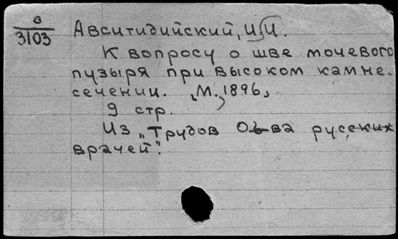 а
3103
Авситидийский, И.И.
К вопросу о шве мочевого
пузыря при высоком камне-
сечении. М., 1896,
9 стр.
Из „Трудов О-ва русских
врачей".